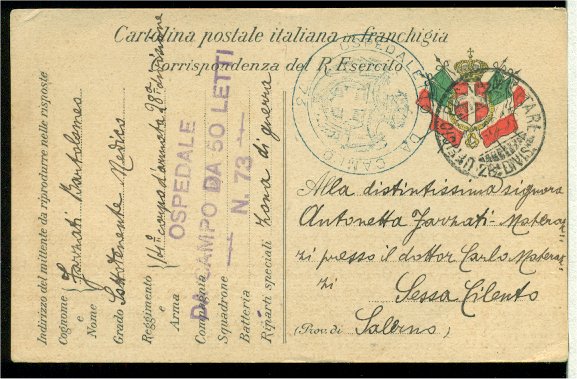 Cartolina postale italiana in franchigia
Corrispondenza del R. Esercito
Indirizzo del mittente da riprodurre nelle risposte
Cognome e Nome Jannati Bartolomeo
Grado Sottotenente Medico
Reggimento e Arma 14º corpo d'armata 28ª divisione
Compagnia
Squadrone
Batteria
Riparti speciali zona di guerra
OSPEDALE
DA CAMPO DA 50 LETTI
N. 73
OSPEDALE DA CAMPO
Alla distintissima signora
Antonetta Jannati-Materaz
zi presso il dottor Carlo Materaz
zi
Sessa Cilento
(Prov. di Salerno)